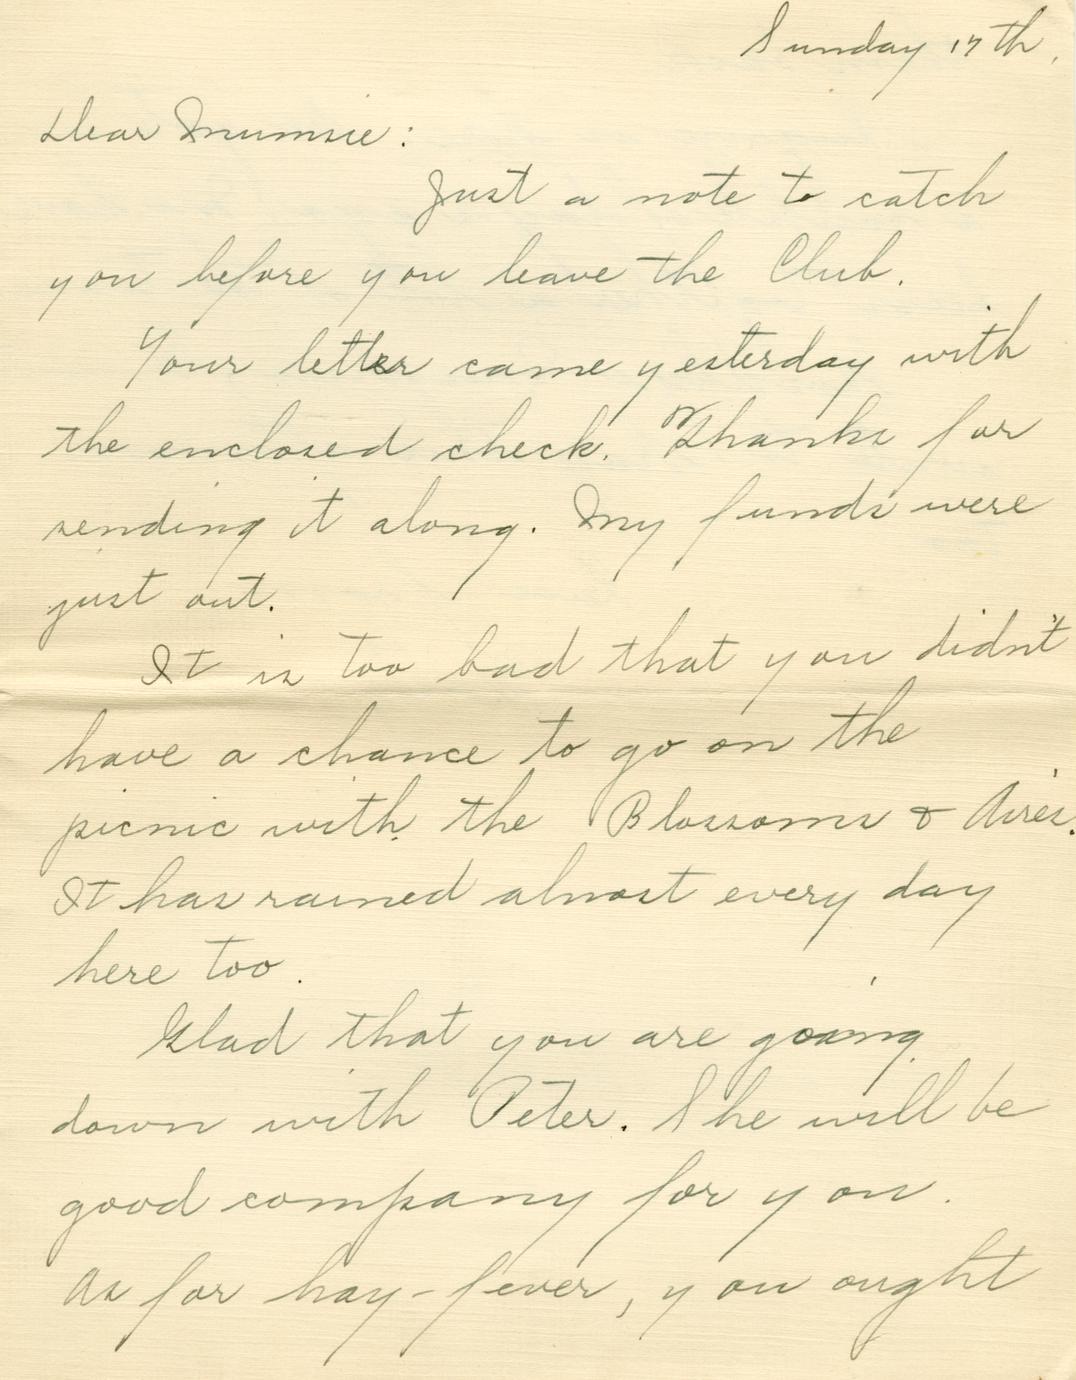 Sunday 17th,
Dear Mumsie:
Just a note to catch
you before you leave the Club.
Your letter came yesterday with
the enclosed check. Thanks for
sending it along. My funds were
just out.
It is too bad that you didn't
have a chance to go on the
picnic with the Blossoms & Aires.
It has rained almost every day
here too.
Glad that you are going
down with Peter. She will be
good company for you.
As for hay-fever, you ought